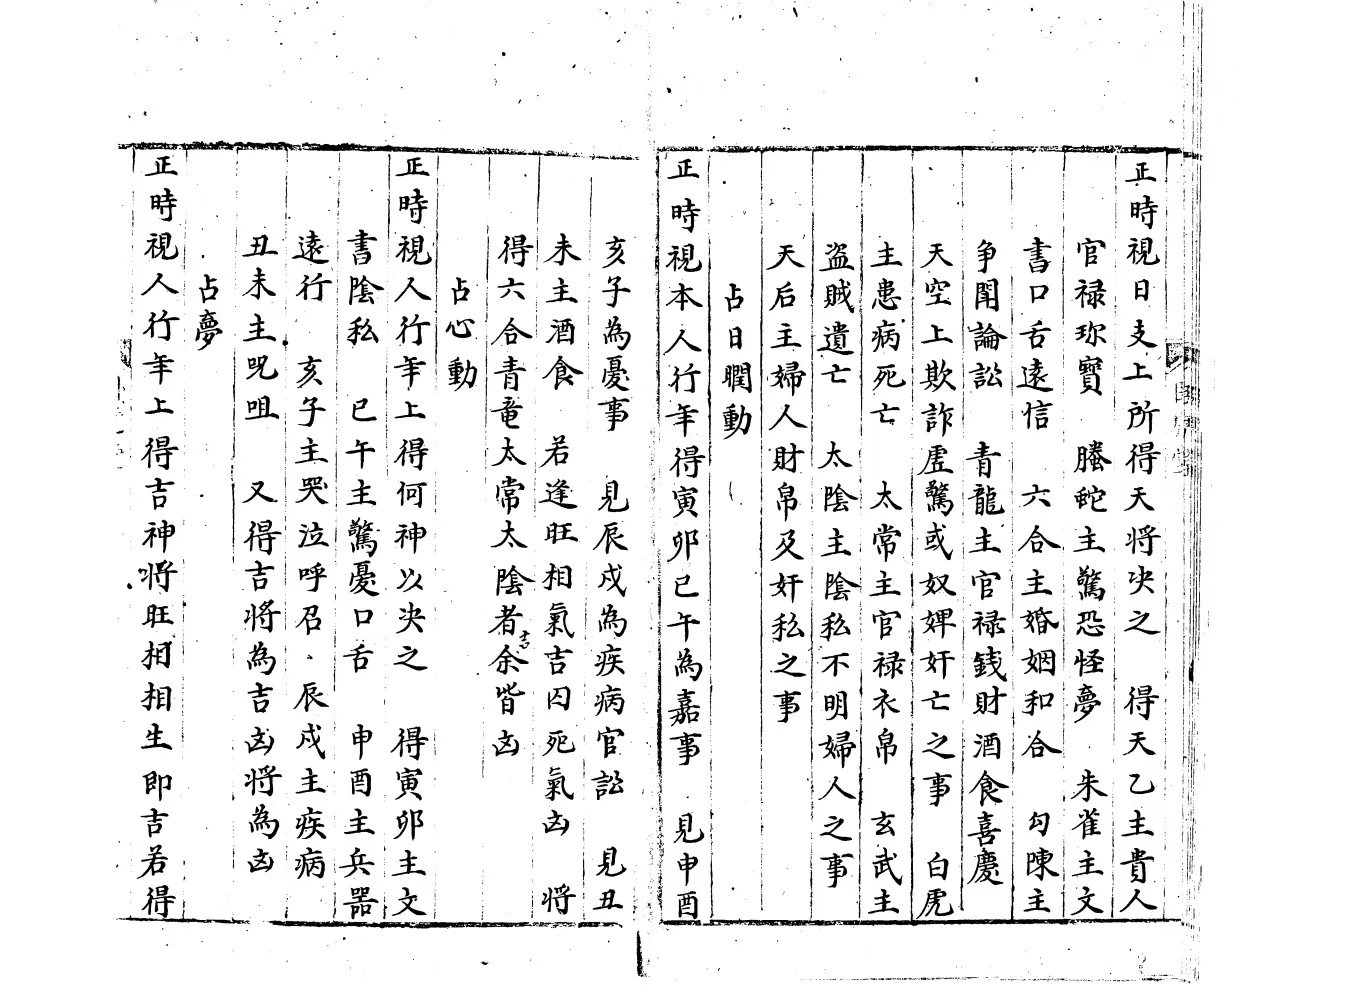 正時視日支上所得天将决之　得天乙主貴人
官禄珎寶　螣蛇主驚恐怪夢　朱雀主文
書口舌遠信　六合主婚姻和合　勾陳主
争閗論訟　青龍主官禄銭財酒食喜慶
天空上欺詐虛驚或奴婢奸亡之事　白虎
主患病死亡　太常主官禄衣帛　玄武主
盗賊遺亡　太陰主陰私不明婦人之事
天后主婦人財帛及奸私之事
占日瞤動
正時視本人行年得寅卯巳午為嘉事　見申酉
亥子為憂事　見辰戌為疾病官訟　見丑
未主酒食　若逢旺相氣吉囚死氣凶　将
得六合青竜太常太陰者吉余皆凶
占心動
正時視人行年上得何神以决之　得寅卯主文
書陰私　巳午主驚憂口舌　申酉主兵器
遠行　亥子主哭泣呼召　辰戌主疾病
丑未主咒咀　又得吉将為吉凶将為凶
占夢
正時視人行年上得吉神将旺相相生即吉若得